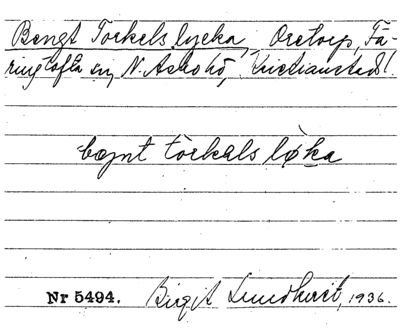 Bengt Torkels lycka, Oretorp, Fä-
ringtofta sn, N. Åsbo hd, Kristianstads l.
bæŋt tòrkals løka
Nr 5494. Birgit Lundkvist, 1936.